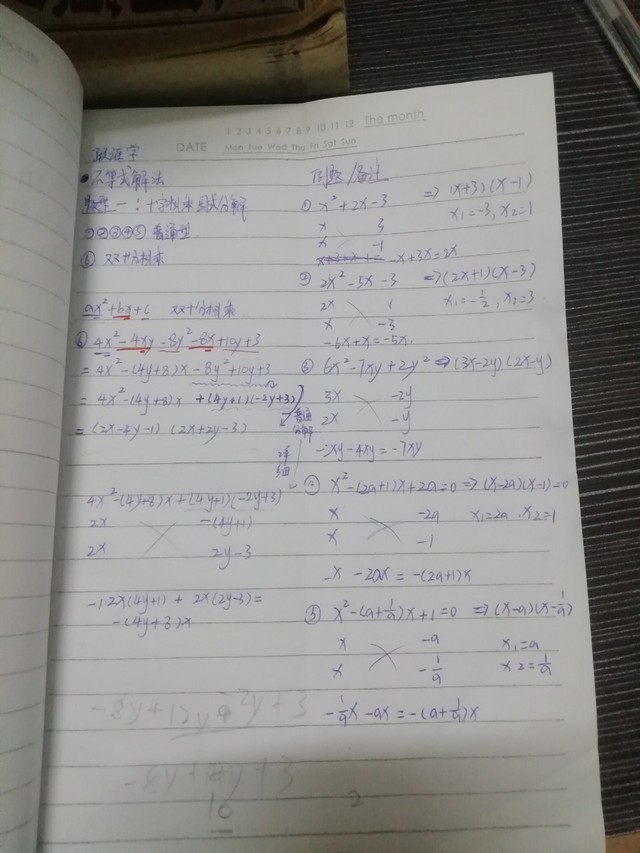 1 2 3 4 5 6 7 8 9 10 11 12 Tha month
DATE Mon Tue Wed Thu Fri Sat Sun
• 不等式解法
题型一：十字相乘因式分解
①②③④⑤ 普通型
⑥ 双十字相乘
ax²+bx+c 双十字相乘
⑥ 4x²-4xy-8y²-8x+10y+3
= 4x²-(4y+8)x-8y²+10y+3
= 4x²-(4y+8)x+(4y+1)(-2y+3)
普通分解
= (2x-4y-1)(2x+2y-3)
4x²-(4y+8)x+(4y+1)(-2y+3)
2x -(4y+1)
2x 2y-3
-1·2x(4y+1) + 2x(2y-3) =
-(4y+8)x
-8y+12y
+3
10
例题/备注
① x²+2x-3 ⇒ (x+3)(x-1)
x 3 x₁=-3, x₂=1
x -1
-x+3x=2x
② 2x²-5x-3 ⇒ (2x+1)(x-3)
2x 1 x₁=-½, x₂=3
x -3
-6x+x=-5x
③ 6x²-7xy+2y² ⇒ (3x-2y)(2x-y)
3x -2y
2x -y
-3xy-4xy=-7xy
④ x²-(2a+1)x+2a=0 ⇒ (x-2a)(x-1)=0
x -2a x₁=2a, x₂=1
x -1
-x-2ax=-(2a+1)x
⑤ x²-(a+1/a)x+1=0 ⇒ (x-a)(x-1/a)
x -a x₁=a
x -1/a x₂=1/a
-1/a x-ax=-(a+1/a)x
2